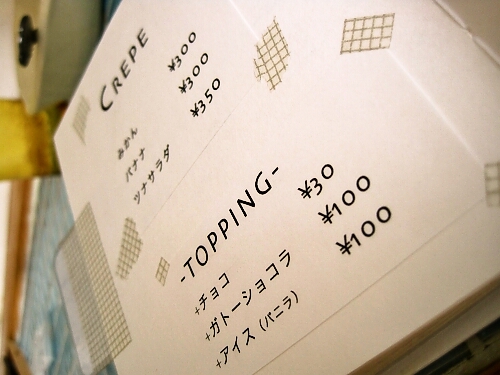 CREPE
みかん ¥300
バナナ ¥300
ツナサラダ ¥350
-TOPPING-
+チョコ ¥30
+ガトーショコラ ¥100
+アイス (バニラ) ¥100